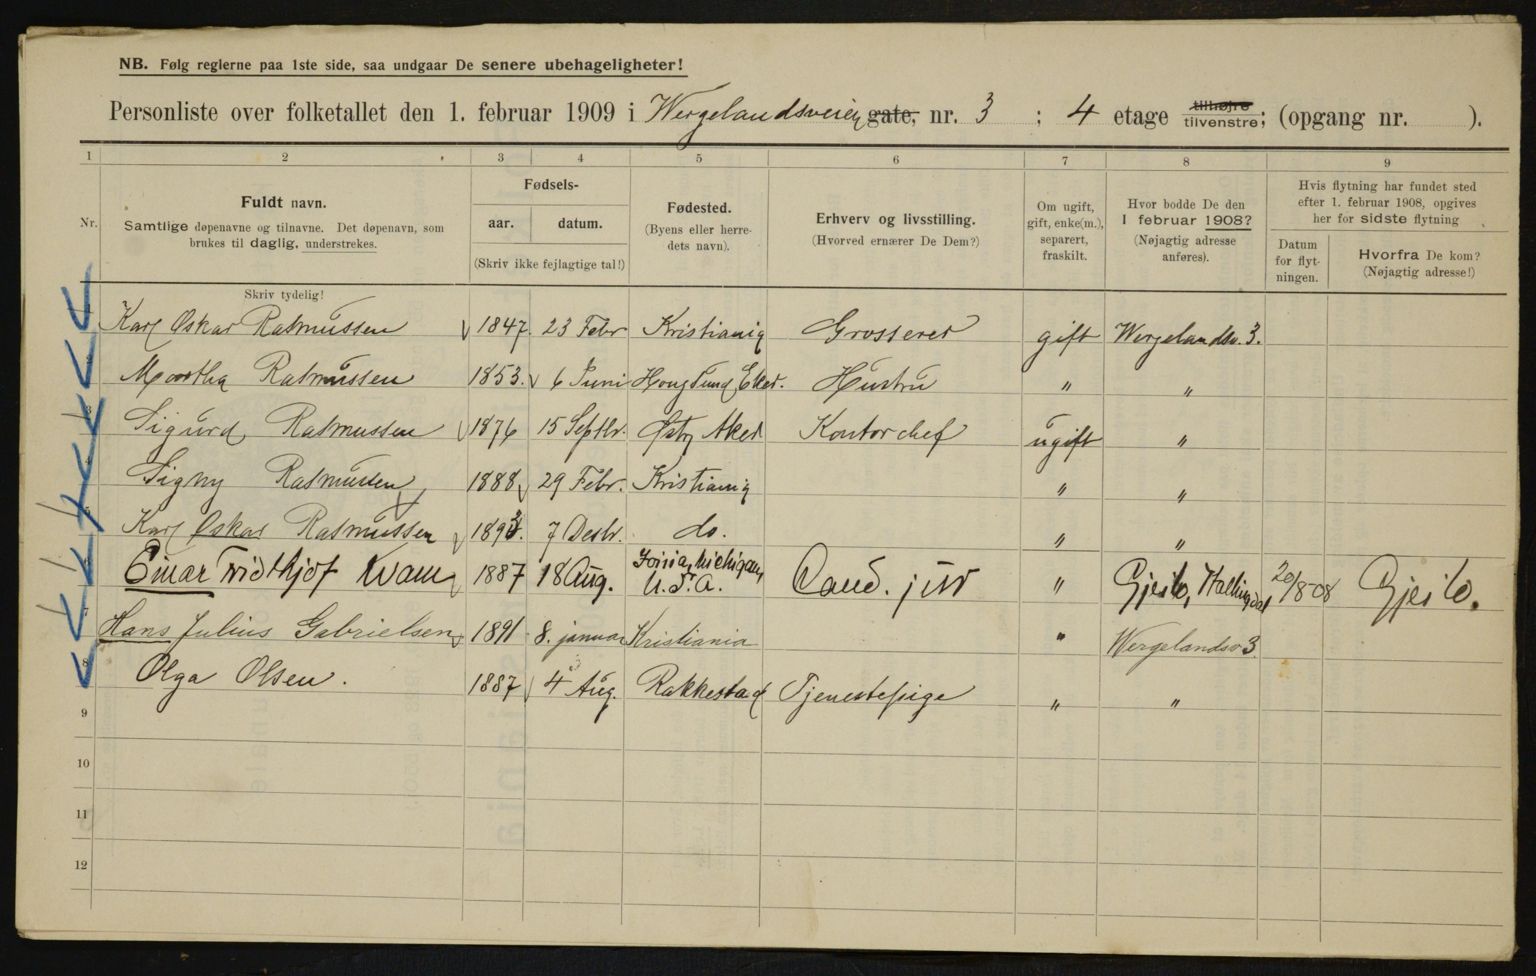 NB. Følg reglerne paa 1ste side, saa undgaar De senere ubehageligheter!
Personliste over folketallet den 1. februar 1909 i Wergelandsveien gate, nr. 3 ; 4 etage tilhøjre tilvenstre; (opgang nr. ).
1 2 3 4 5 6 7 8 9
Nr.
Fuldt navn.
Samtlige døpenavne og tilnavne. Det døpenavn, som
brukes til daglig, understrekes.
Skriv tydelig!
Fødsels-
aar. datum.
(Skriv ikke fejlagtige tal!)
Fødested.
(Byens eller herre-
dets navn).
Erhverv og livsstilling.
(Hvorved ernærer De Dem?)
Om ugift,
gift, enke(m.),
separert,
fraskilt.
Hvor bodde De den
1 februar 1908?
(Nøjagtig adresse
anføres).
Hvis flytning har fundet sted
efter 1. februar 1908, opgives
her for sidste flytning
Datum
for flyt-
ningen.
Hvorfra De kom?
(Nøjagtig adresse!)
1 Karl Oskar Rasmussen 1847. 23 Febr Kristiania Grosserer gift Wergelandsv. 3.
2 Martha Rasmussen 1853. 6 Juni Hougsund Eker. Hustru " "
3 Sigurd Rasmussen 1876 15 Septbr. Østr Aker Kontorchef ugift "
4 Signy Rasmussen 1888 29 Febr. Kristiania " "
5 Karl Oskar Rasmussen 1893. 7 Desbr. do. " "
6 Einar Fridthjof Kvam 1887 18 Aug. Ionia, Michigan, U.S.A. Cand. jur " Gjeilo, Hallingdal 20/8-08 Gjeilo.
7 Hans Julius Gabrielsen 1891 8. januar Kristiania " Wergelandsv 3
8 Olga Olsen. 1887 4 Aug. Rakkestad Tjenestepige " "
9
10
11
12